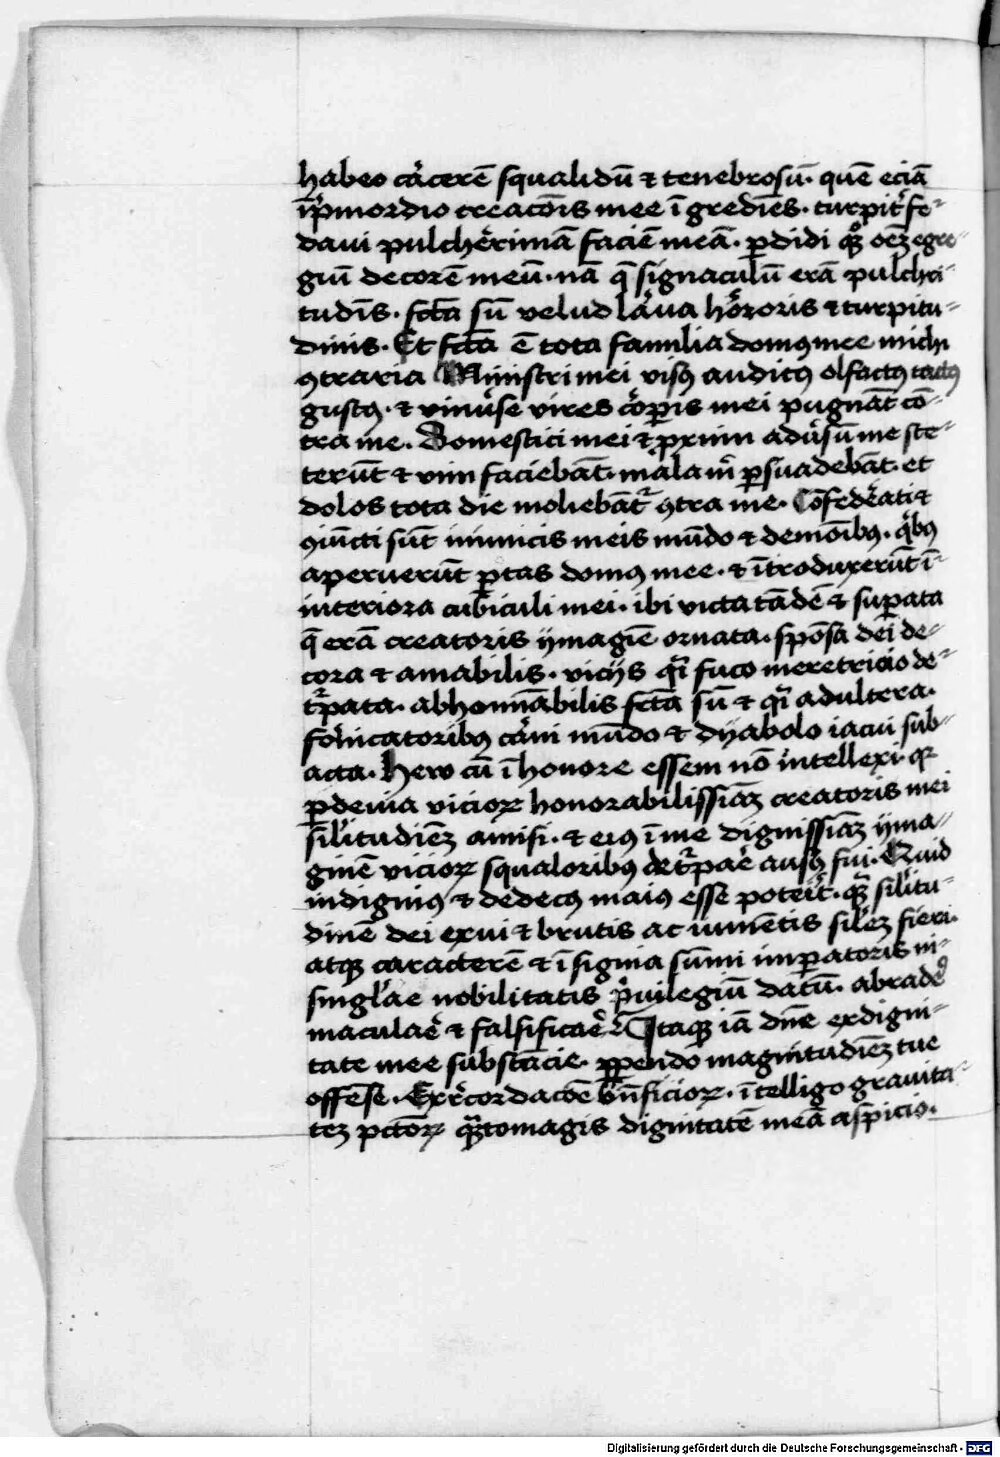 habeo càcerē squalidū ⁊ tenebrosū· quē eciā
ī p̄mordio creacōis mee īgrediēs· turpit᷑ fe-
daui pulcherimā faciē meā· ꝑdidi qꝫ oēꝫ egre-
giū decorē meū· nā q̄ signaculū erā pulchri-
tudīs· fcta sū velud lar̄ua horroris ⁊ turpitu-
dinis· Et fcta ē tota familia domꝰ mee michi
ꝯtraria Ministri mei visꝰ auditꝰ olfactꝰ tactꝰ
gustꝰ· ⁊ vniu᷑se vires corꝑis mei pugnāt cō-
tra me· Domestici mei ⁊ ꝓximi adu᷑sū me ste-
terūt ⁊ vim faciebāt· mala m̄ ꝑsuadebāt· et
dolos tota die moliebāt᷑ ꝯtra me· Cōfederati ⁊
ꝯiūcti sūt inimicis meis mūdo ⁊ demoībꝰ· qͥbꝰ
aperuerūt portas domꝰ mee· ⁊ ītroduxerūt ī
interiora cubiculi mei· ibi victa tādē ⁊ suꝑata
q̄ erā creatoris ymagīe ornata· spōsa dei de-
cora ⁊ amabilis· vicijs qͣi fuco meretricio de-
tᷣpata· abhomīabilis fcta sū ⁊ qͣi adultera·
fornicatoribꝰ carni mūdo ⁊ dyabolo iacui sub-
acta· Hew cū ī honore essem nō intellexi· qꝫ
ꝑ deuia vicioꝝ honorabilissiaꝫ creatoris mei
sil̄itudiēꝫ amisi· ⁊ eiꝰ ī me dignissiaꝫ yma-
ginē vicioꝝ squaloribꝰ det᷑paē ausꝰ fui· Quid
indigniꝰ ⁊ dedecꝰ maiꝰ esse poterit· qͣꝫ sil̄itu-
dinē dei exui ⁊ brutis ac iumētis sil̄eꝫ fieri·
atqꝫ caracterē ⁊ īsignia sūmi imꝑatoris ni-
singl̄ae nobilitatis pͥuilegiū datū· abrade᷑
maculae᷑ ⁊ falsificae᷑ Itaqꝫ iā dn̄e ex digni-
tate mee substācie· ꝑpendo magnitudiēꝫ tue
offēse· Ex r̄cordacōe bn̄ficioꝝ· ītelligo grauita-
teꝫ pctōꝝ qͣꝫtomagis dignitatē meā aspicio·
Digitalisierung gefördert durch die Deutsche Forschungsgemeinschaft - DFG